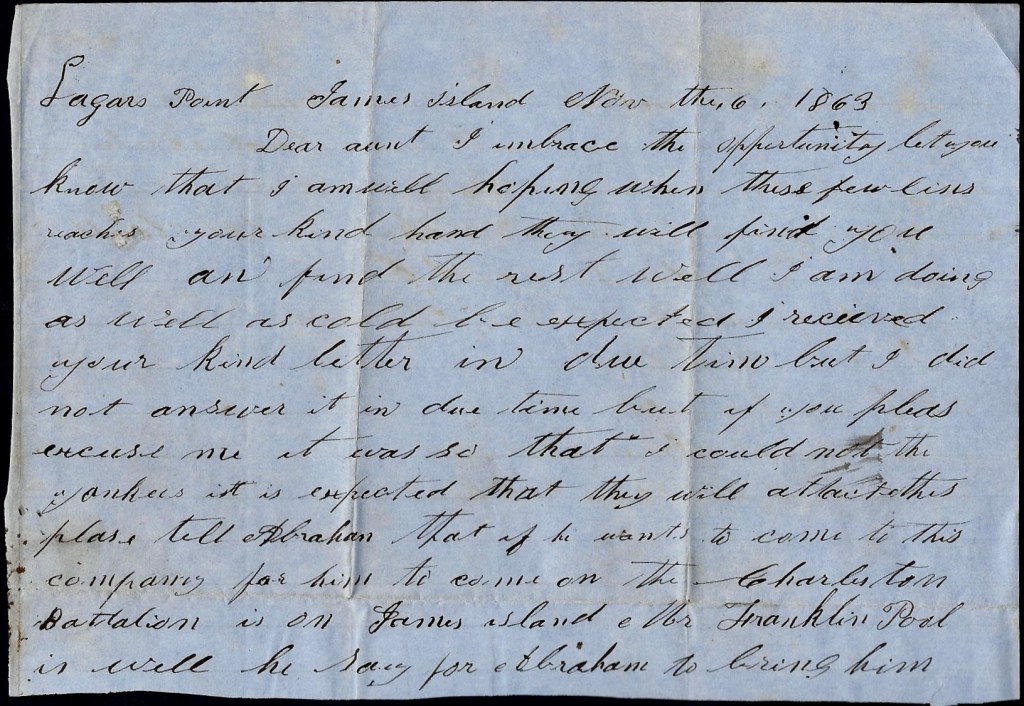 Lagars Point James island Nov the, 6, 1863
Dear aunt I imbrace the opportunitoy let you
know that I am well hoping when these few lins
reaches your kind hand they will find you
well an find the rest well I am doing
as well as cold be expected I recieved
your kind letter in due tim but I did
not answer it in due time but if you pleas
excuse me it was so that I could not the
yankees it is expected that they will attact this
plase tell Abraham that if he wants to come to this
company for him to come on the Charleston
Battalion is on James island Mr Franklin Pool
is well he say for Abraham to bring him